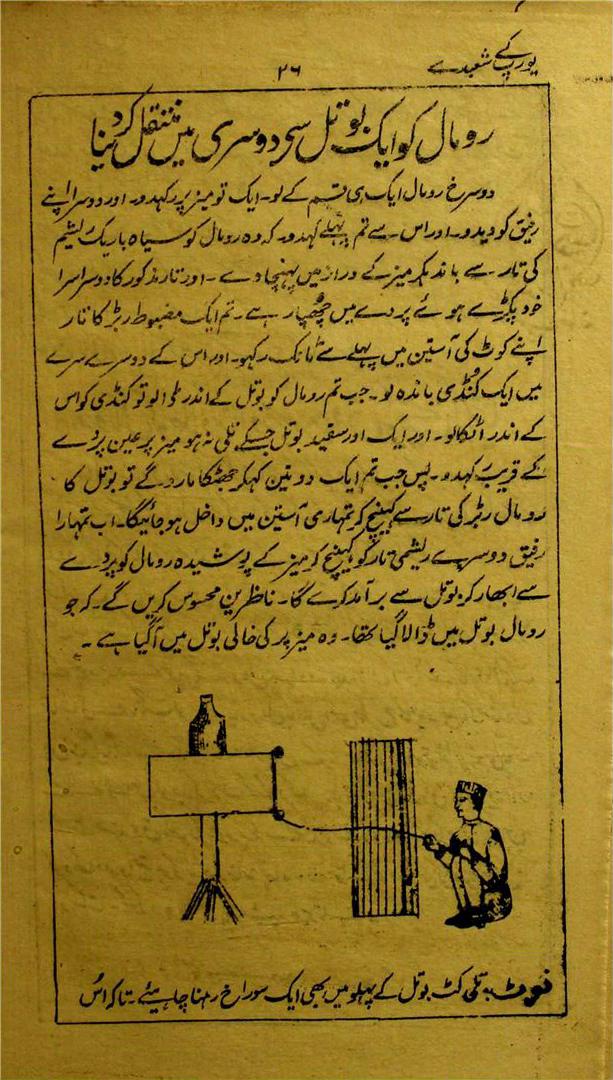 یورپ کے شعبدے
۲۶
رومال کو ایک بوتل سے دوسری میں منتقل کر دینا
دو سرخ رومال ایک ہی قسم کے لو۔ ایک تو میز پر رکھدو۔ اور دوسرا اپنے
رفیق کو دیدو۔ اور اس سے تم پہلے کہدو۔ کہ وہ رومال کو سیاہ باریک ریشم
کی تار سے باندھکر میز کے دراز میں پہنچا دے۔ اور تار مذکور کا دوسرا سرا
خود پکڑے ہوئے پردے میں چھپا رہے۔ تم ایک مضبوط ربڑ کا تار
اپنے کوٹ کی آستین میں پہلے سے ٹانک رکھو۔ اور اس کے دوسرے سرے
میں ایک کنڈی باندہ لو۔ جب تم رومال کو بوتل کے اندر ڈالو تو کنڈی کو اس
کے اندر اٹکالو۔ اور ایک اور سفید بوتل جسکے تلی نہ ہو میز پر عین پردے
کے قریب رکھدو۔ پس جب تم ایک دو تین کہکر جھٹکا مارو گے تو بوتل کا
رومال ربڑ کی تار سے کھینچ کر تمہاری آستین میں داخل ہو جائیگا۔ اب تمہارا
رفیق دوسرے ریشمی تار کو کھینچ کر میز کے پوشیدہ رومال کو پردے
سے ابھار کر بوتل سے برآمد کرے گا۔ ناظرین محسوس کریں گے۔ کہ جو
رومال بوتل میں ڈالا گیا تھا۔ وہ میز پر کی خالی بوتل میں آگیا ہے۔
نوٹ:۔ تلی کٹ بوتل کے پہلو میں بھی ایک سوراخ رہنا چاہیئے۔ تاکہ اُس